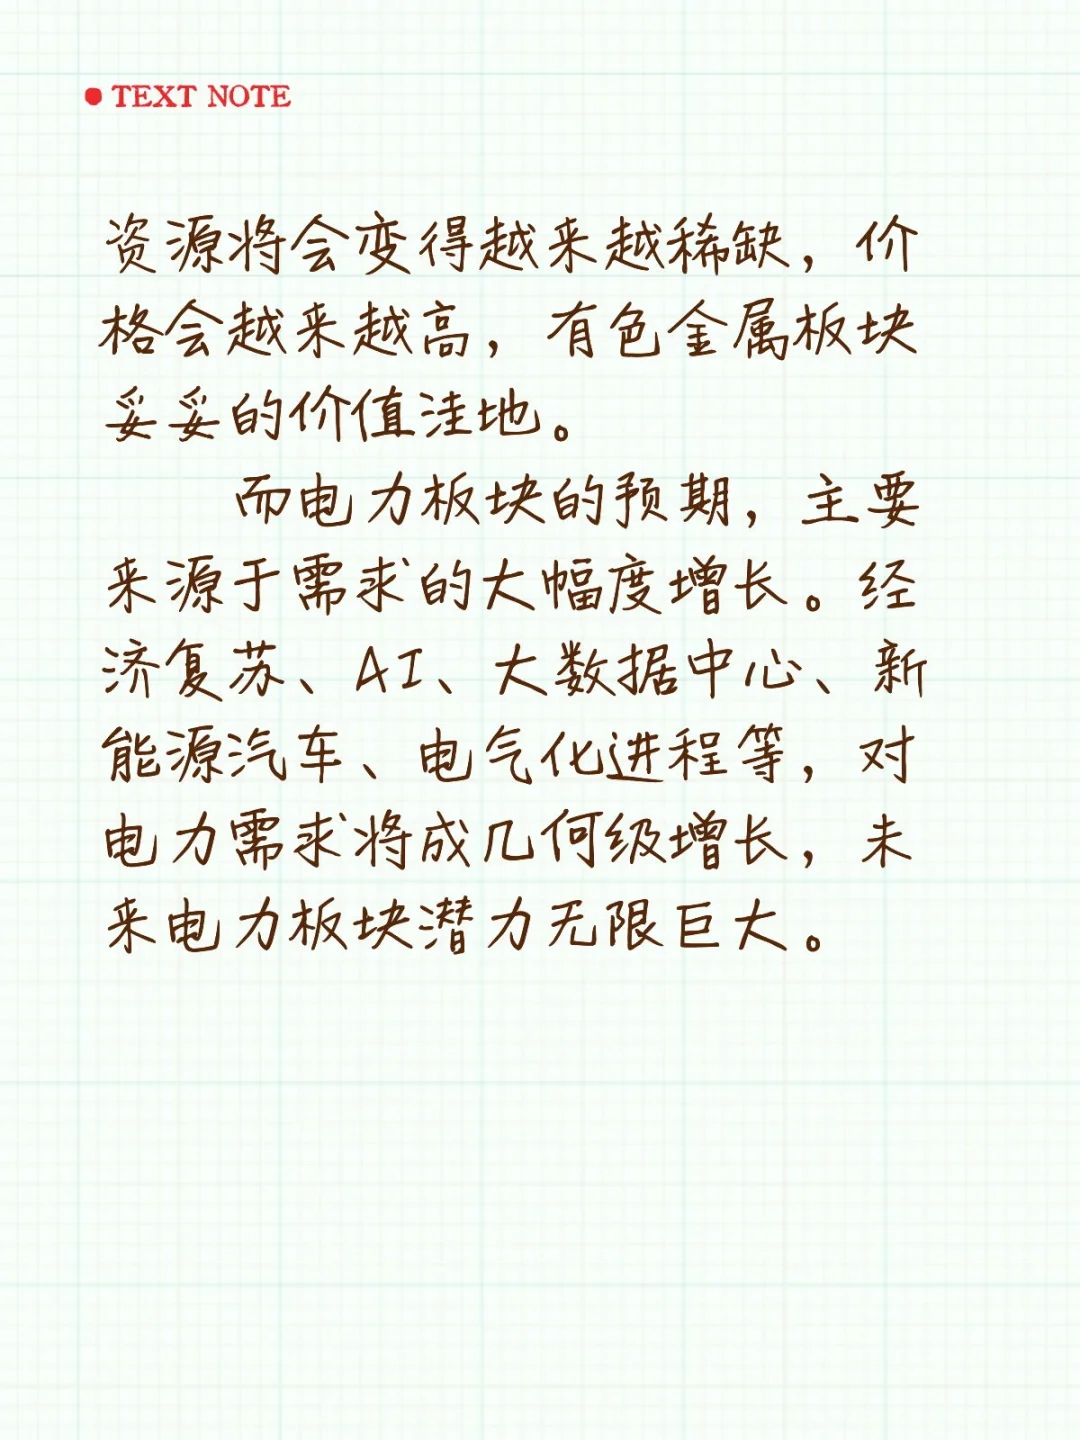 TEXT NOTE
资源将会变得越来越稀缺，价
格会越来越高，有色金属板块
妥妥的价值洼地。
而电力板块的预期，主要
来源于需求的大幅度增长。经
济复苏、AI、大数据中心、新
能源汽车、电气化进程等，对
电力需求将成几何级增长，未
来电力板块潜力无限巨大。